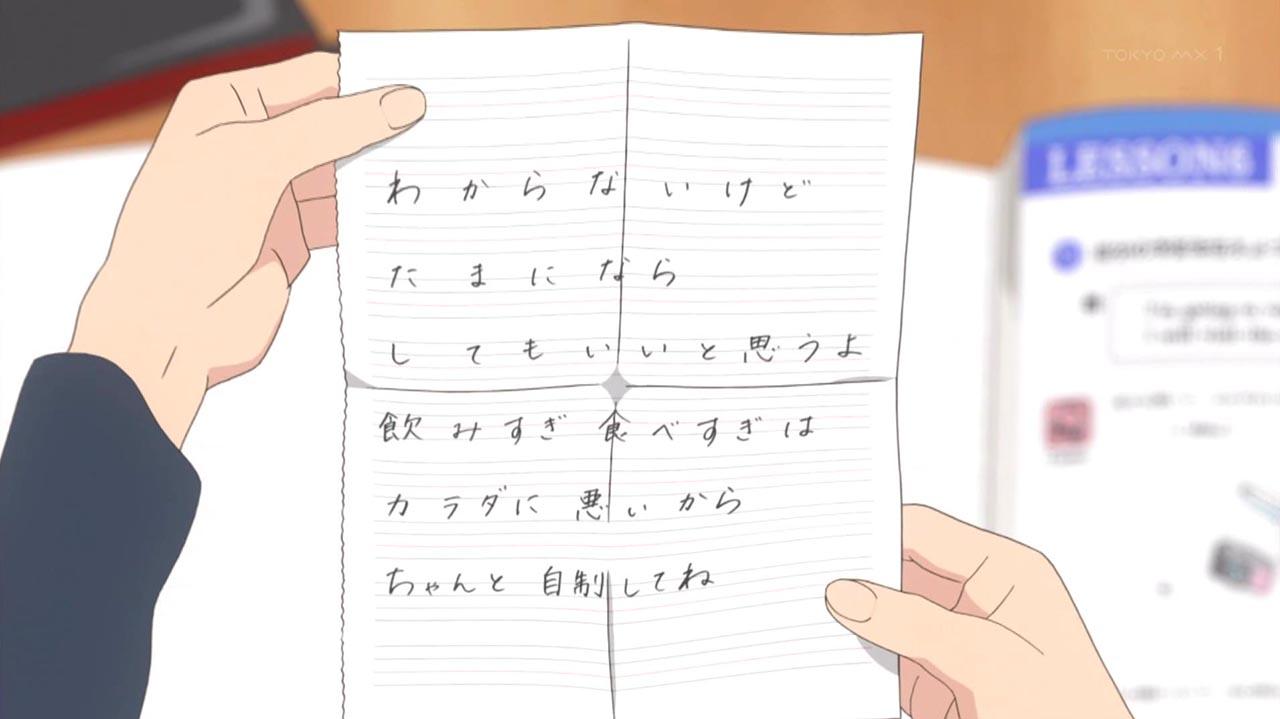 TOKYO MX 1
わからないけど
たまになら
してもいいと思うよ
飲みすぎ食べすぎは
カラダに悪いから
ちゃんと自制してね
LESSON6